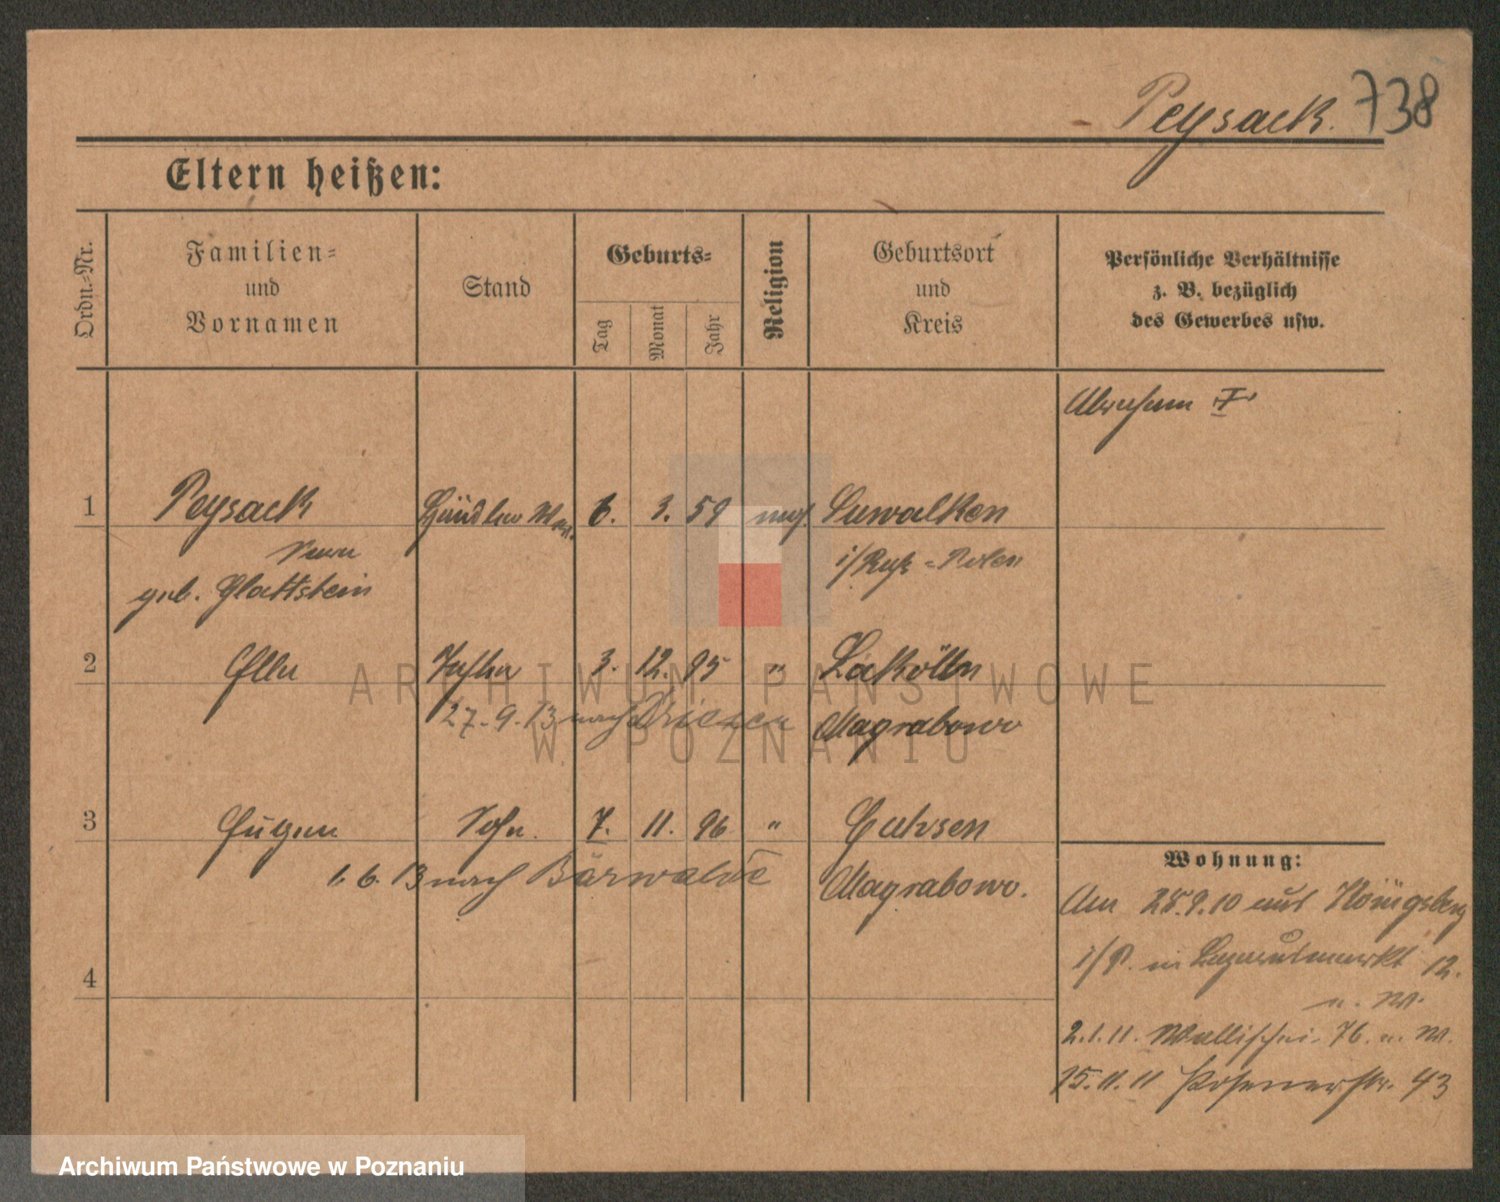 Peysack. 738
Eltern heißen:
Ordn.-Nr.
Familien-
und
Vornamen
Stand
Geburts-
Tag
Monat
Jahr
Religion
Geburtsort
und
Kreis
Persönliche Verhältnisse
z. B. bezüglich
des Gewerbes usw.
Abraham
1 Peysack 6. 3. 59 Suwalken
geb. Glattstein i/Ruß-Polen
2 Ella Tochter 3. 12. 95 "
27.9.13 nach Driezen Magrabowo
3 Eugen Sohn. 7. 11. 96 "
1.6.13 nach Bärwalde Magrabowo.
4
Wohnung:
Am 28.9.10 aus Königsberg
i/P. in 12.
2.1.11. Wallischei 76.
15.11.11 Posenerstr. 43
ARCHIWUM PAŃSTWOWE
W POZNANIU
Archiwum Państwowe w Poznaniu